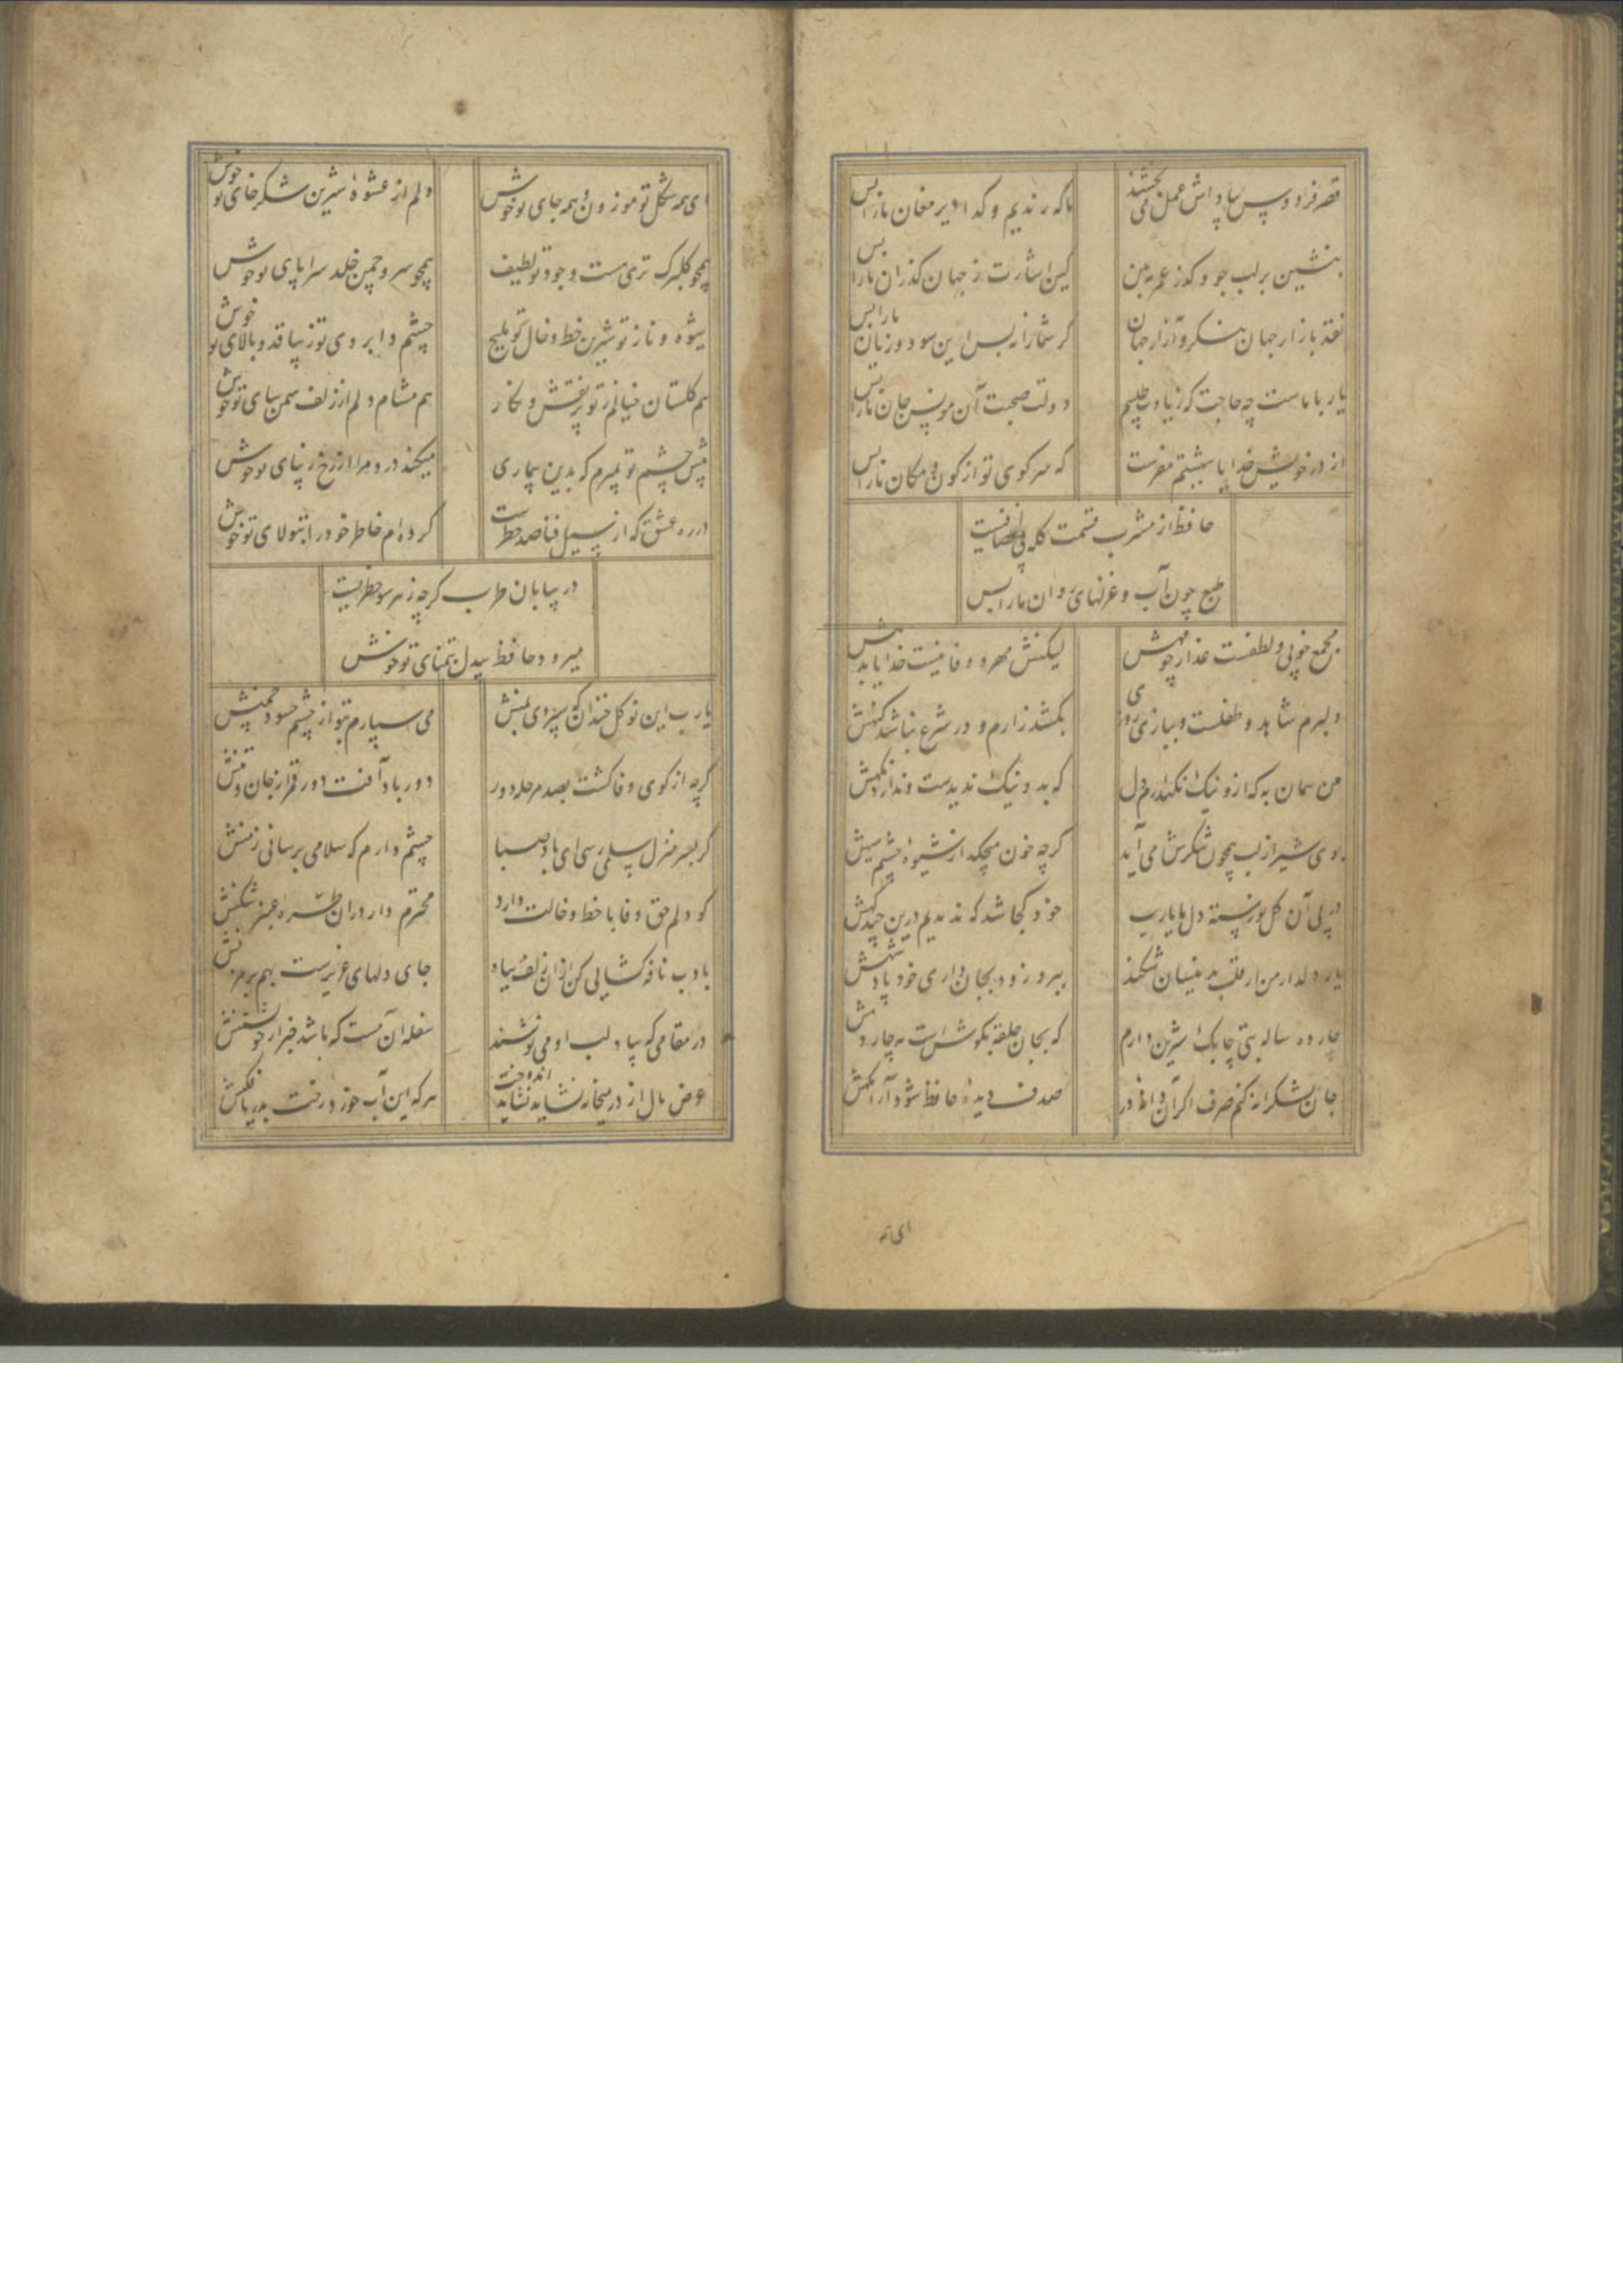 قصر فردوس بپاداش عمل می بخشند
ما که رندیم و گدا دیر مغان ما را بس
بنشین بر لب جوی و گذر عمر ببین
کین اشارت ز جهان گذران ما را بس
نقد بازار جهان بنگر و آزار جهان
گر شما را نه بس این سود و زیان ما را بس
یار با ماست چه حاجت که زیادت طلبیم
دولت صحبت آن مونس جان ما را بس
از در خویش خدایا ببهشتم مفرست
که سر کوی تو از کون و مکان ما را بس
حافظ از مشرب قسمت گله بی انصافیست
طبع چون آب و غزلهای روان ما را بس
مجمع خوبی و لطفست عذار چو مهش
لیکنش مهر و وفا نیست خدایا بدهش
دلبرم شاهد و طفلست و ببازی روزی
بکشد زارم و در شرع نباشد گنهش
من همان به که ازو نیک نگه دارم دل
که بد و نیک ندیدست و ندارد نگهش
بوی شیر از لب همچون شکرش می آید
گرچه خون میچکد از شیوه چشم سیهش
در پی آن گل نورسته دل ما یا رب
خود کجا شد که ندیدیم درین چند گهش
یار دلدار من ار قلب بدینسان شکند
ببرد زود بجانداری خود پادشهش
چارده ساله بتی چابک شیرین دارم
که بجان حلقه بگوش است مه چاردهش
جان بشکرانه کنم صرف اگر آن دانه در
صدف دیده حافظ شود آرامگهش
ای همه
ای همه شکل تو موزون و همه جای تو خوش
دلم از عشوه شیرین شکرخای تو خوش
همچو گلبرگ تری هست وجود تو لطیف
همچو سرو چمن خلد سراپای تو خوش
شیوه و ناز تو شیرین خط و خال تو ملیح
چشم و ابروی تو زیبا قد و بالای تو خوش
هم گلستان خیالم ز تو پر نقش و نگار
هم مشام دلم از زلف سمن سای تو خوش
پیش چشم تو بمیرم که بدین بیماری
میکند درد مرا از رخ زیبای تو خوش
در ره عشق که از سیل فنا صد خطرست
کرده ام خاطر خود را بتولای تو خوش
در بیابان طرب گرچه ز هر سو خطریست
میرود حافظ بیدل بتمنای تو خوش
یا رب این نوگل خندان که سپردی بمنش
می سپارم بتو از چشم حسود چمنش
گرچه از کوی وفا گشت بصد مرحله دور
دور باد آفت دور قمر از جان و تنش
گر بسر منزل سلمی رسی ای باد صبا
چشم دارم که سلامی برسانی ز منش
گو دلم حق وفا با خط و خالت دارد
محترم دار در آن طره عنبر شکنش
بادب نافه گشایی کن از آن زلف سیاه
جای دلهای عزیزست بهم بر مزنش
در مقامی که بیاد لب او می نوشند
سفله آن مست که باشد خبر از خویشتنش
عرض مال از در میخانه نشاید اندوخت
هر که این آب خورد رخت بدریا فکنش